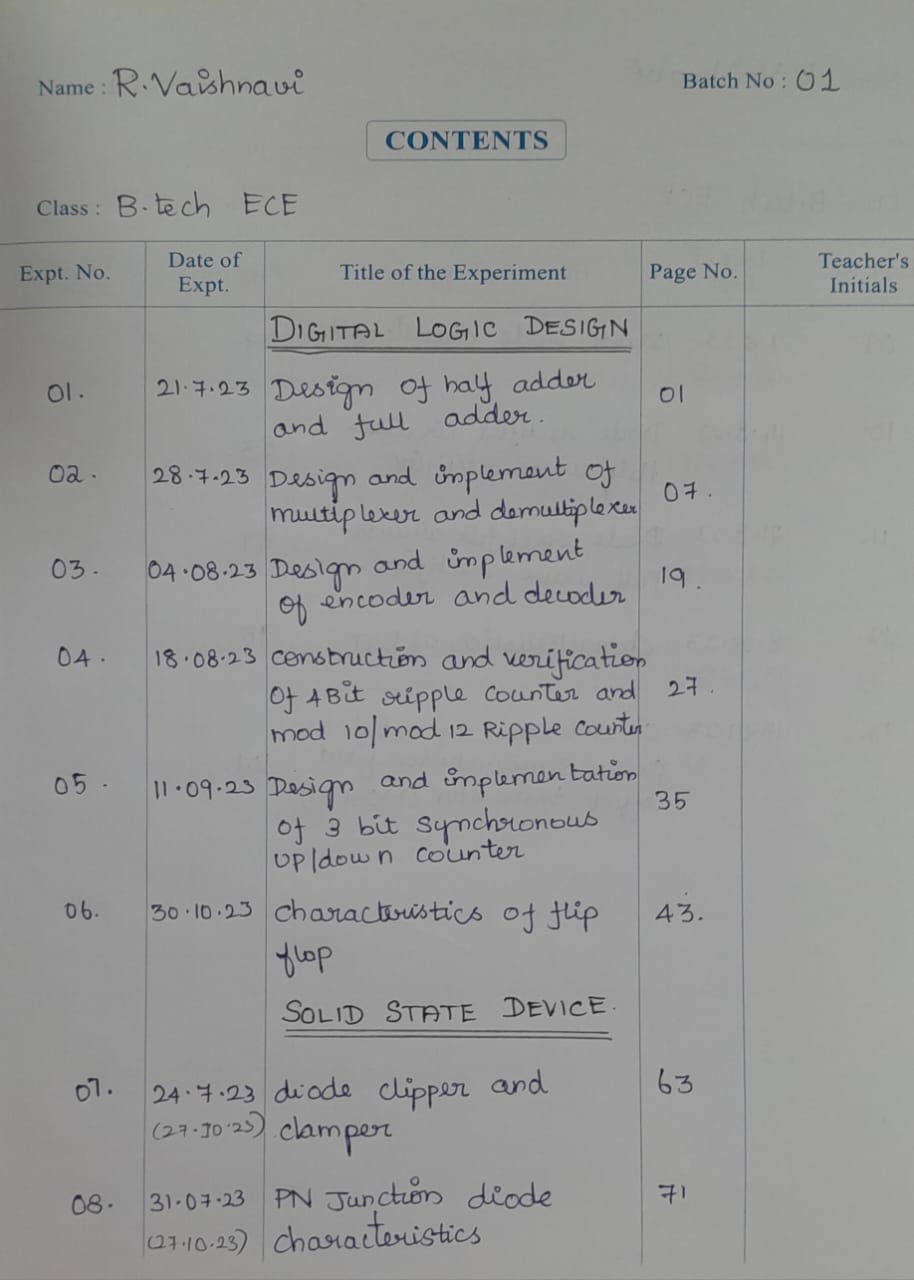 Name : R. Vaishnavi Batch No : 01
CONTENTS
Class : B.tech ECE
Expt. No. Date of Expt. Title of the Experiment Page No. Teacher's Initials
DIGITAL LOGIC DESIGN
01. 21.7.23 Design of half adder 01
and full adder.
02. 28.7.23 Design and implement of 07.
multiplexer and demultiplexer
03. 04.08.23 Design and implement 19.
of encoder and decoder
04. 18.08.23 construction and verification
Of 4 Bit ripple counter and 27.
mod 10/mod 12 Ripple counter
05. 11.09.23 Design and implementation 35
of 3 bit synchronous
up/down counter
06. 30.10.23 characteristics of flip 43.
flop
SOLID STATE DEVICE.
07. 24.7.23 diode clipper and 63
(27.10.23) clamper
08. 31.07.23 PN Junction diode 71
(27.10.23) characteristics